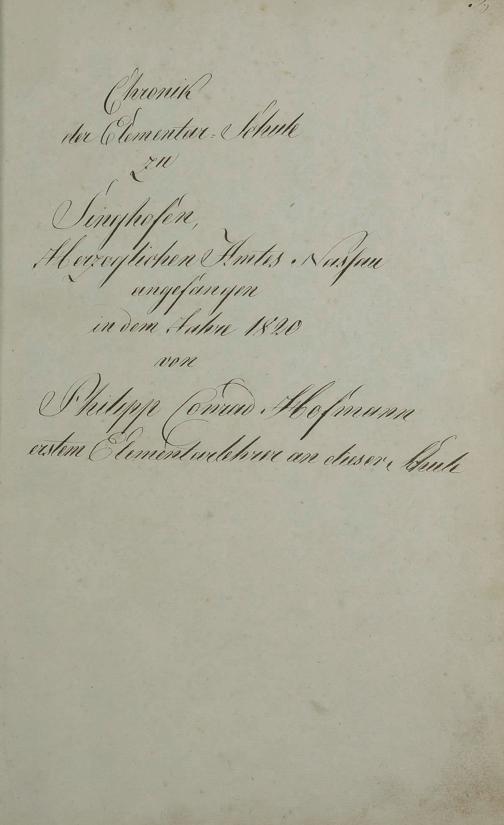 Chronik
der Elementar-Schule
zu
Singhofen,
Herzoglichen Amtes Nassau
angefangen
in dem Jahre 1820
von
Philipp Conrad Hofmann
erstem Elementarlehrer an dieser Schule